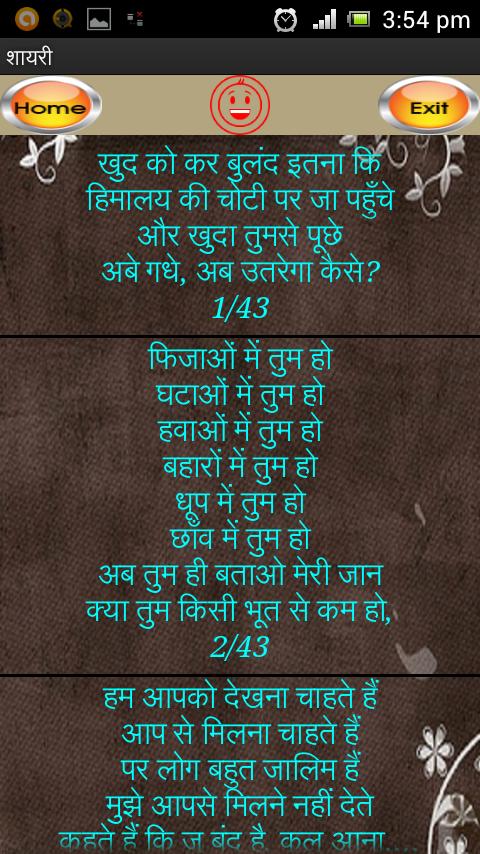 3:54 pm
शायरी
Home
Exit
खुद को कर बुलंद इतना कि
हिमालय की चोटी पर जा पहुँचे
और खुदा तुमसे पूछे
अबे गधे, अब उतरेगा कैसे?
1/43
फिजाओं में तुम हो
घटाओं में तुम हो
हवाओं में तुम हो
बहारों में तुम हो
धूप में तुम हो
छाँव में तुम हो
अब तुम ही बताओ मेरी जान
क्या तुम किसी भूत से कम हो,
2/43
हम आपको देखना चाहते हैं
आप से मिलना चाहते हैं
पर लोग बहुत जालिम हैं
मुझे आपसे मिलने नहीं देते
कहते हैं कि ज़ू बंद है, कल आना....